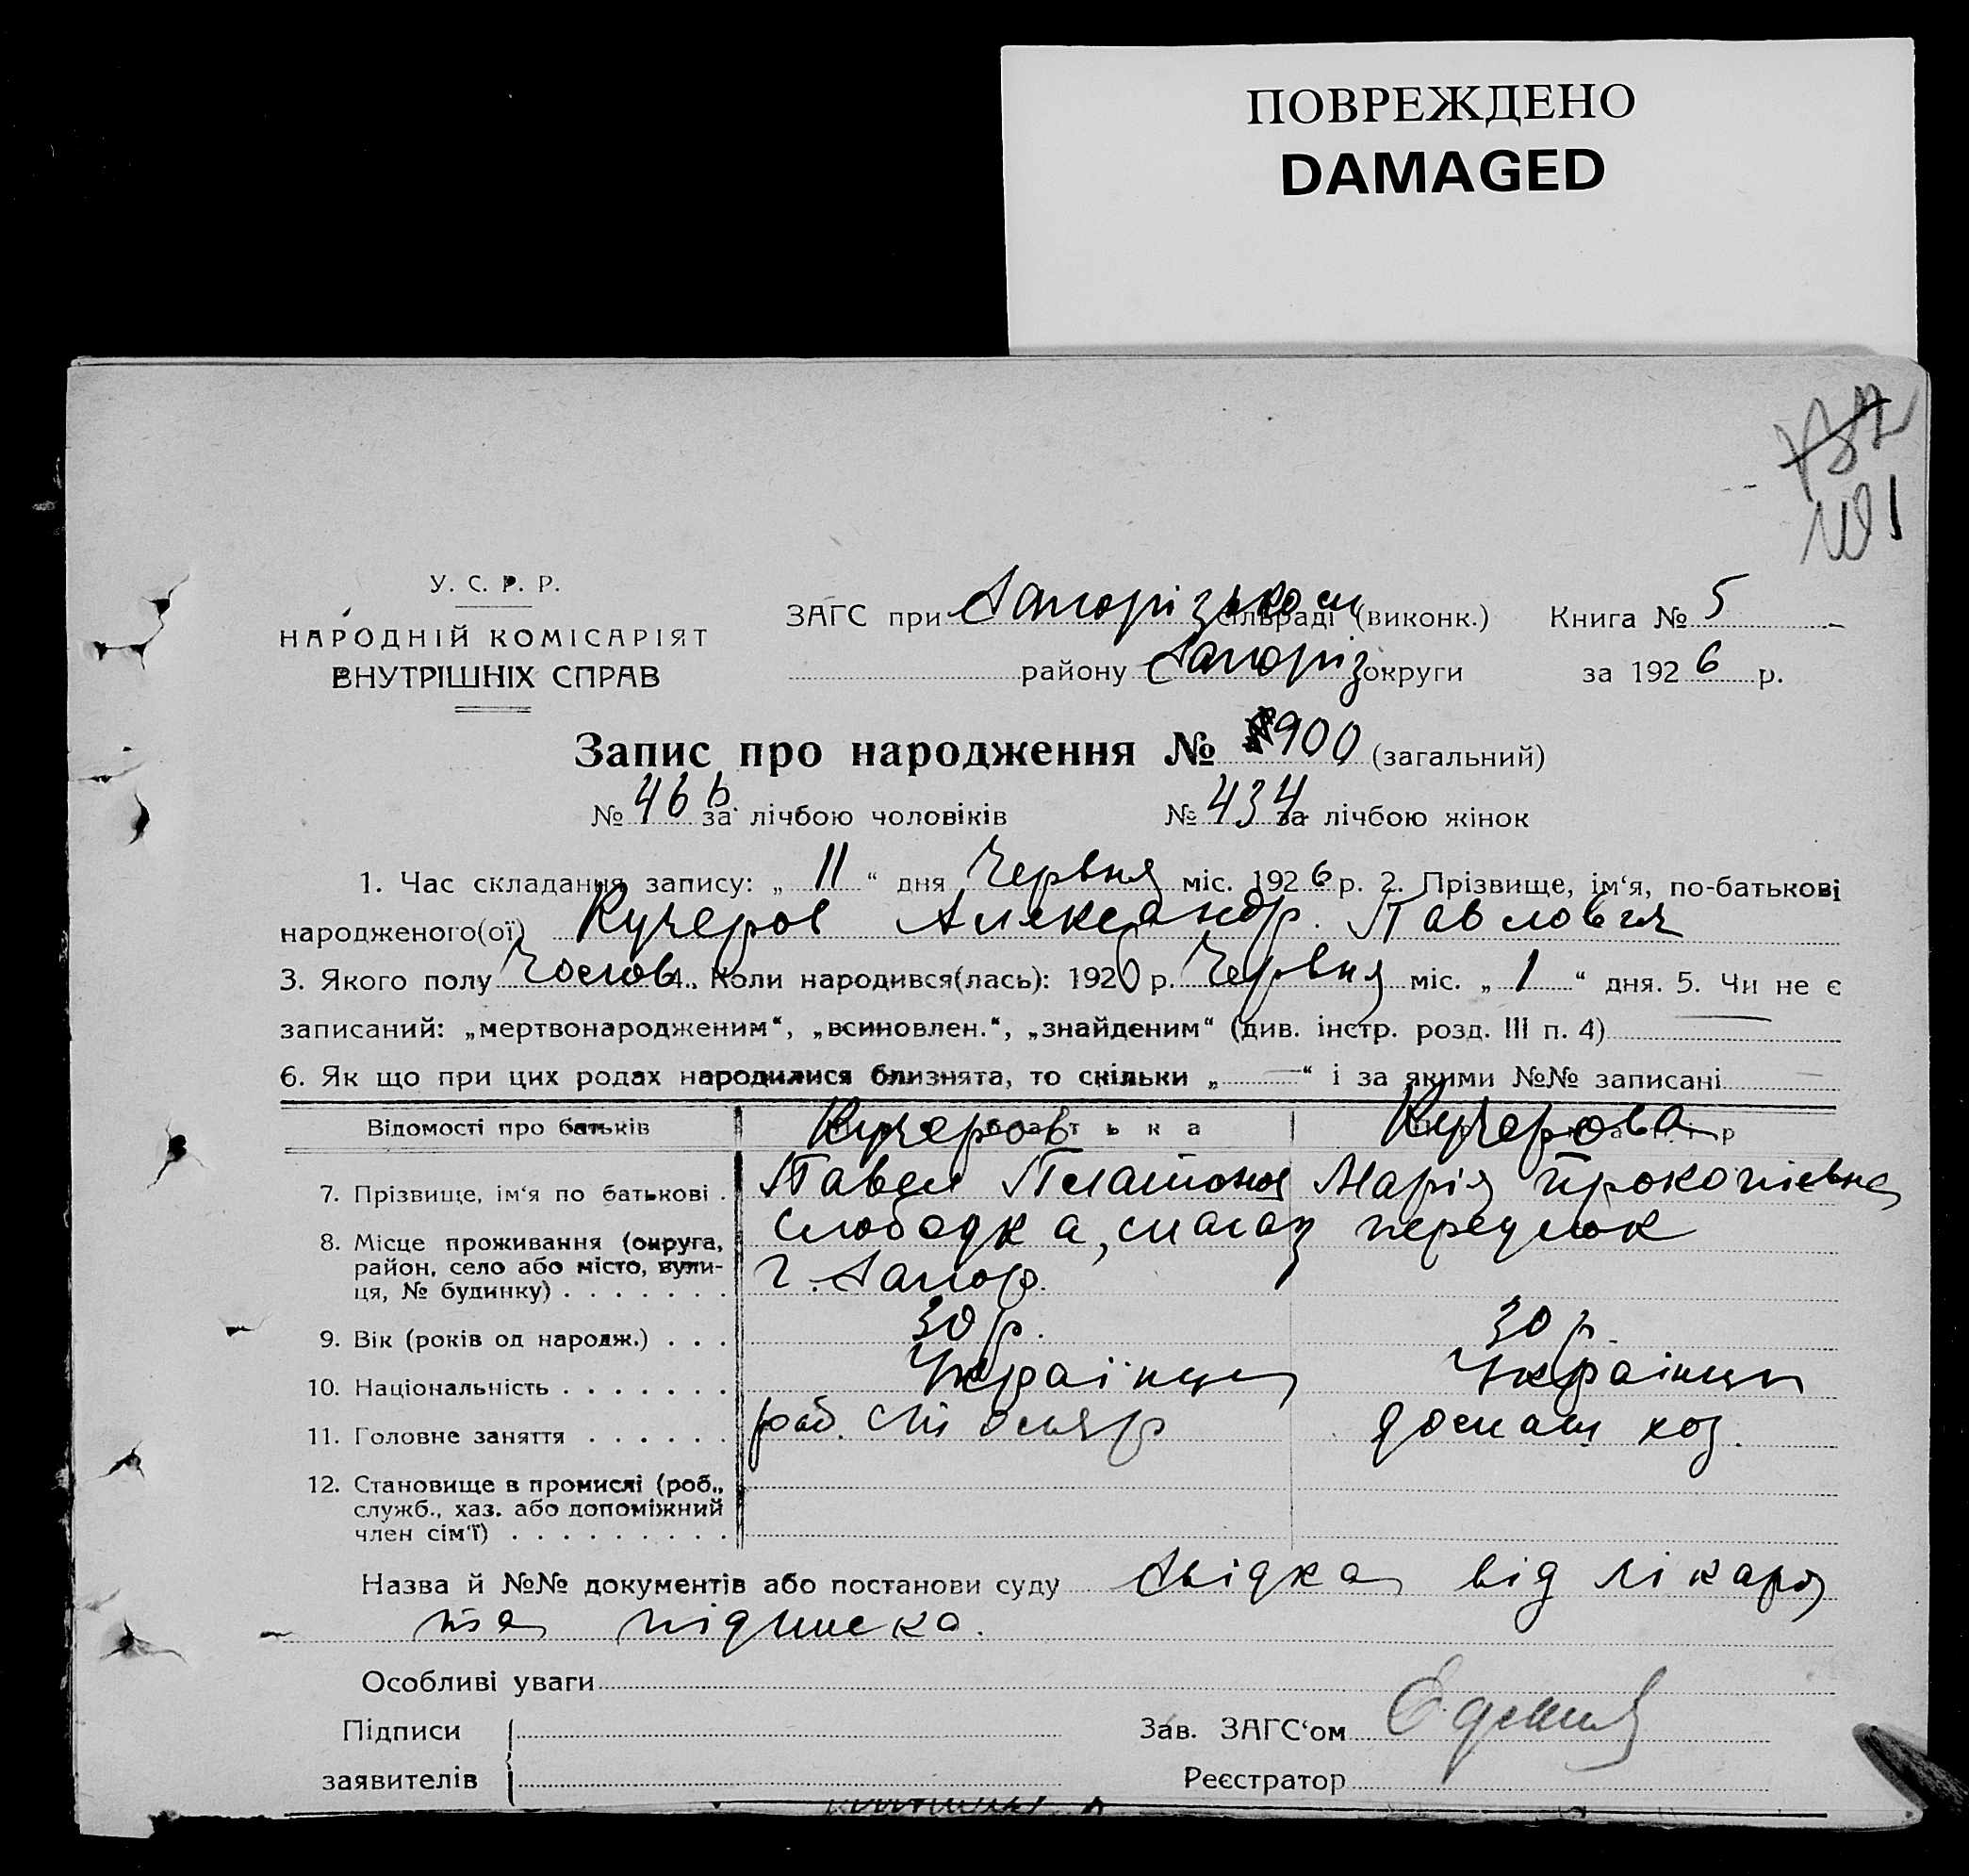 ПОВРЕЖДЕНО
DAMAGED
У. С. Р. Р.
НАРОДНІЙ КОМІСАРІЯТ
ВНУТРІШНІХ СПРАВ
ЗАГС при Запорізьком сільраді (виконк.) Книга № 5
району Запоріз округи за 1926 р.
Запис про народження № 900 (загальний)
№ 466 за лічбою чоловіків № 434 за лічбою жінок
1. Час складання запису: „ 11 “ дня Червня міс. 1926 р. 2. Прізвище, ім‘я, по-батькові
народженого(ої) Кучеров Александр. Павлович
3. Якого полу 4. Коли народився(лась): 1926 р. Червня міс. „ 1 “ дня. 5. Чи не є
записаний: „мертвонародженим“, „всиновлен.“, „знайденим“ (див. інстр. розд. III п. 4)
6. Як що при цих родах народилися близнята, то скільки „ — “ і за якими №№ записані —
Відомості про батьків Кучеров Кучерова
7. Прізвище, ім‘я по батькові . Павел Платонов Марія Прокопіевна
8. Місце проживання (округа, Слободка, переулок
район, село або місто, вули- г. Запор.
ця, № будинку) . . . . . . .
9. Вік (років од народж.) . . . 30 р. 30 р.
10. Національність . . . . . . . Українци Українци
11. Головне заняття . . . . . . раб. домаш хоз.
12. Становище в промислі (роб.,
служб., хаз. або допоміжний
член сім‘ї) . . . . . . . . .
Назва й №№ документів або постанови суду Звідка від лікаря
та підписка.
Особливі уваги
Підписи Зав. ЗАГС‘ом
заявителів Реєстратор